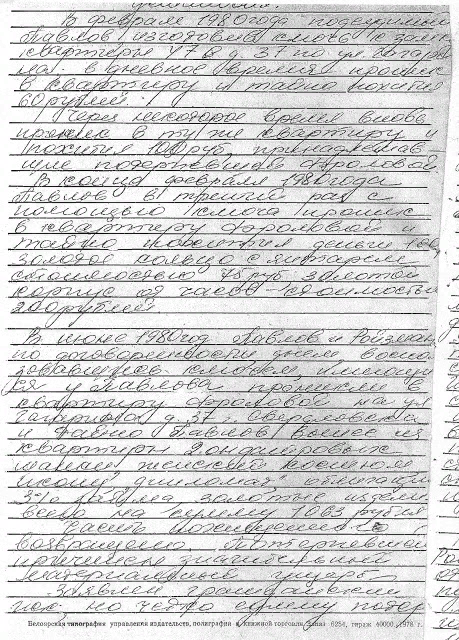 В феврале 1980 года подсудимый
Павлов изготовив ключ к замку
квартиры 47 в д. 37 по ул. Гагари
на в дневное время проник
в квартиру и тайно похитил
60 рублей.
Через некоторое время вновь
проник в ту же квартиру и
похитил 100 руб. принадлежав
шие потерпевшей Фроловой.
В конце февраля 1980 года
Павлов в третий раз с
помощью ключа проник
в квартиру Фроловой и
тайно похитил деньги 100
золотое кольцо с янтарем
стоимостью 75 руб золотой
корпус от часов стоимостью
200 рублей.
В июне 1980 год Павлов и Ройзман
по договоренности днем восполь
зовавшись ключем, имеющи
ся у Павлова проникли в
квартиру Фроловой на ул
Гагарина д. 37 г. Свердловска
и тайно Павлов вынес из
квартиры 2 ондатровых
шапки женский костюм
икону "дипломат" облигации
3% займа золотые изделия
всего на сумму 1063 рубля
Часть похищенного
возвращено. Потерпевшей
причинен значительный
материальный ущерб
Заявлен гражданский
иск, но четко сумму потер
Белоярская типография управления издательств, полиграфии и книжной торговли. Заказ 6254, тираж 40000, 1978 г.